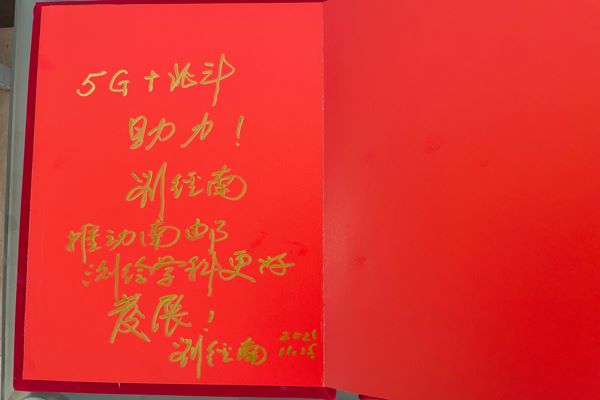 5G+北斗
助力！
刘经南
推动南邮
测绘学科更好
发展！
刘经南